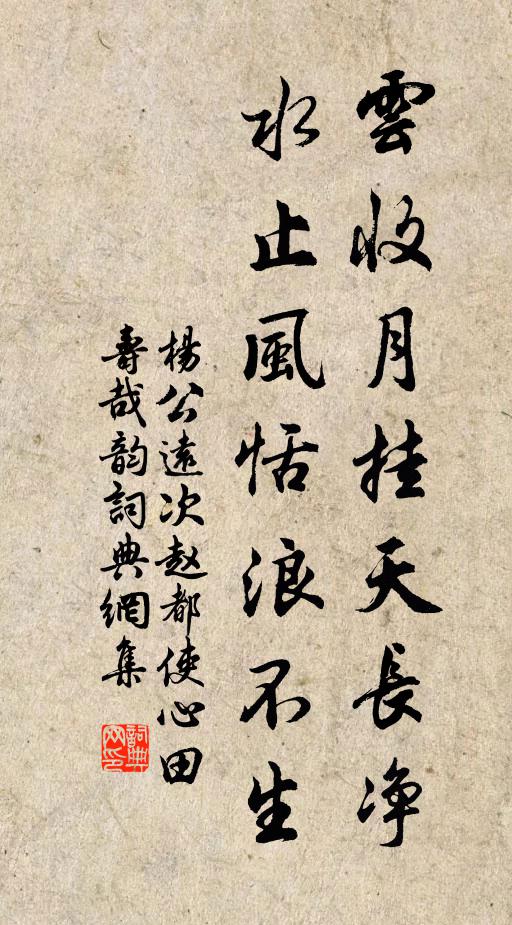 雲收月挂天長净
水止風恬浪不生
楊公遠次赵都使心田
壽哉韵詞典網集
詞典網印